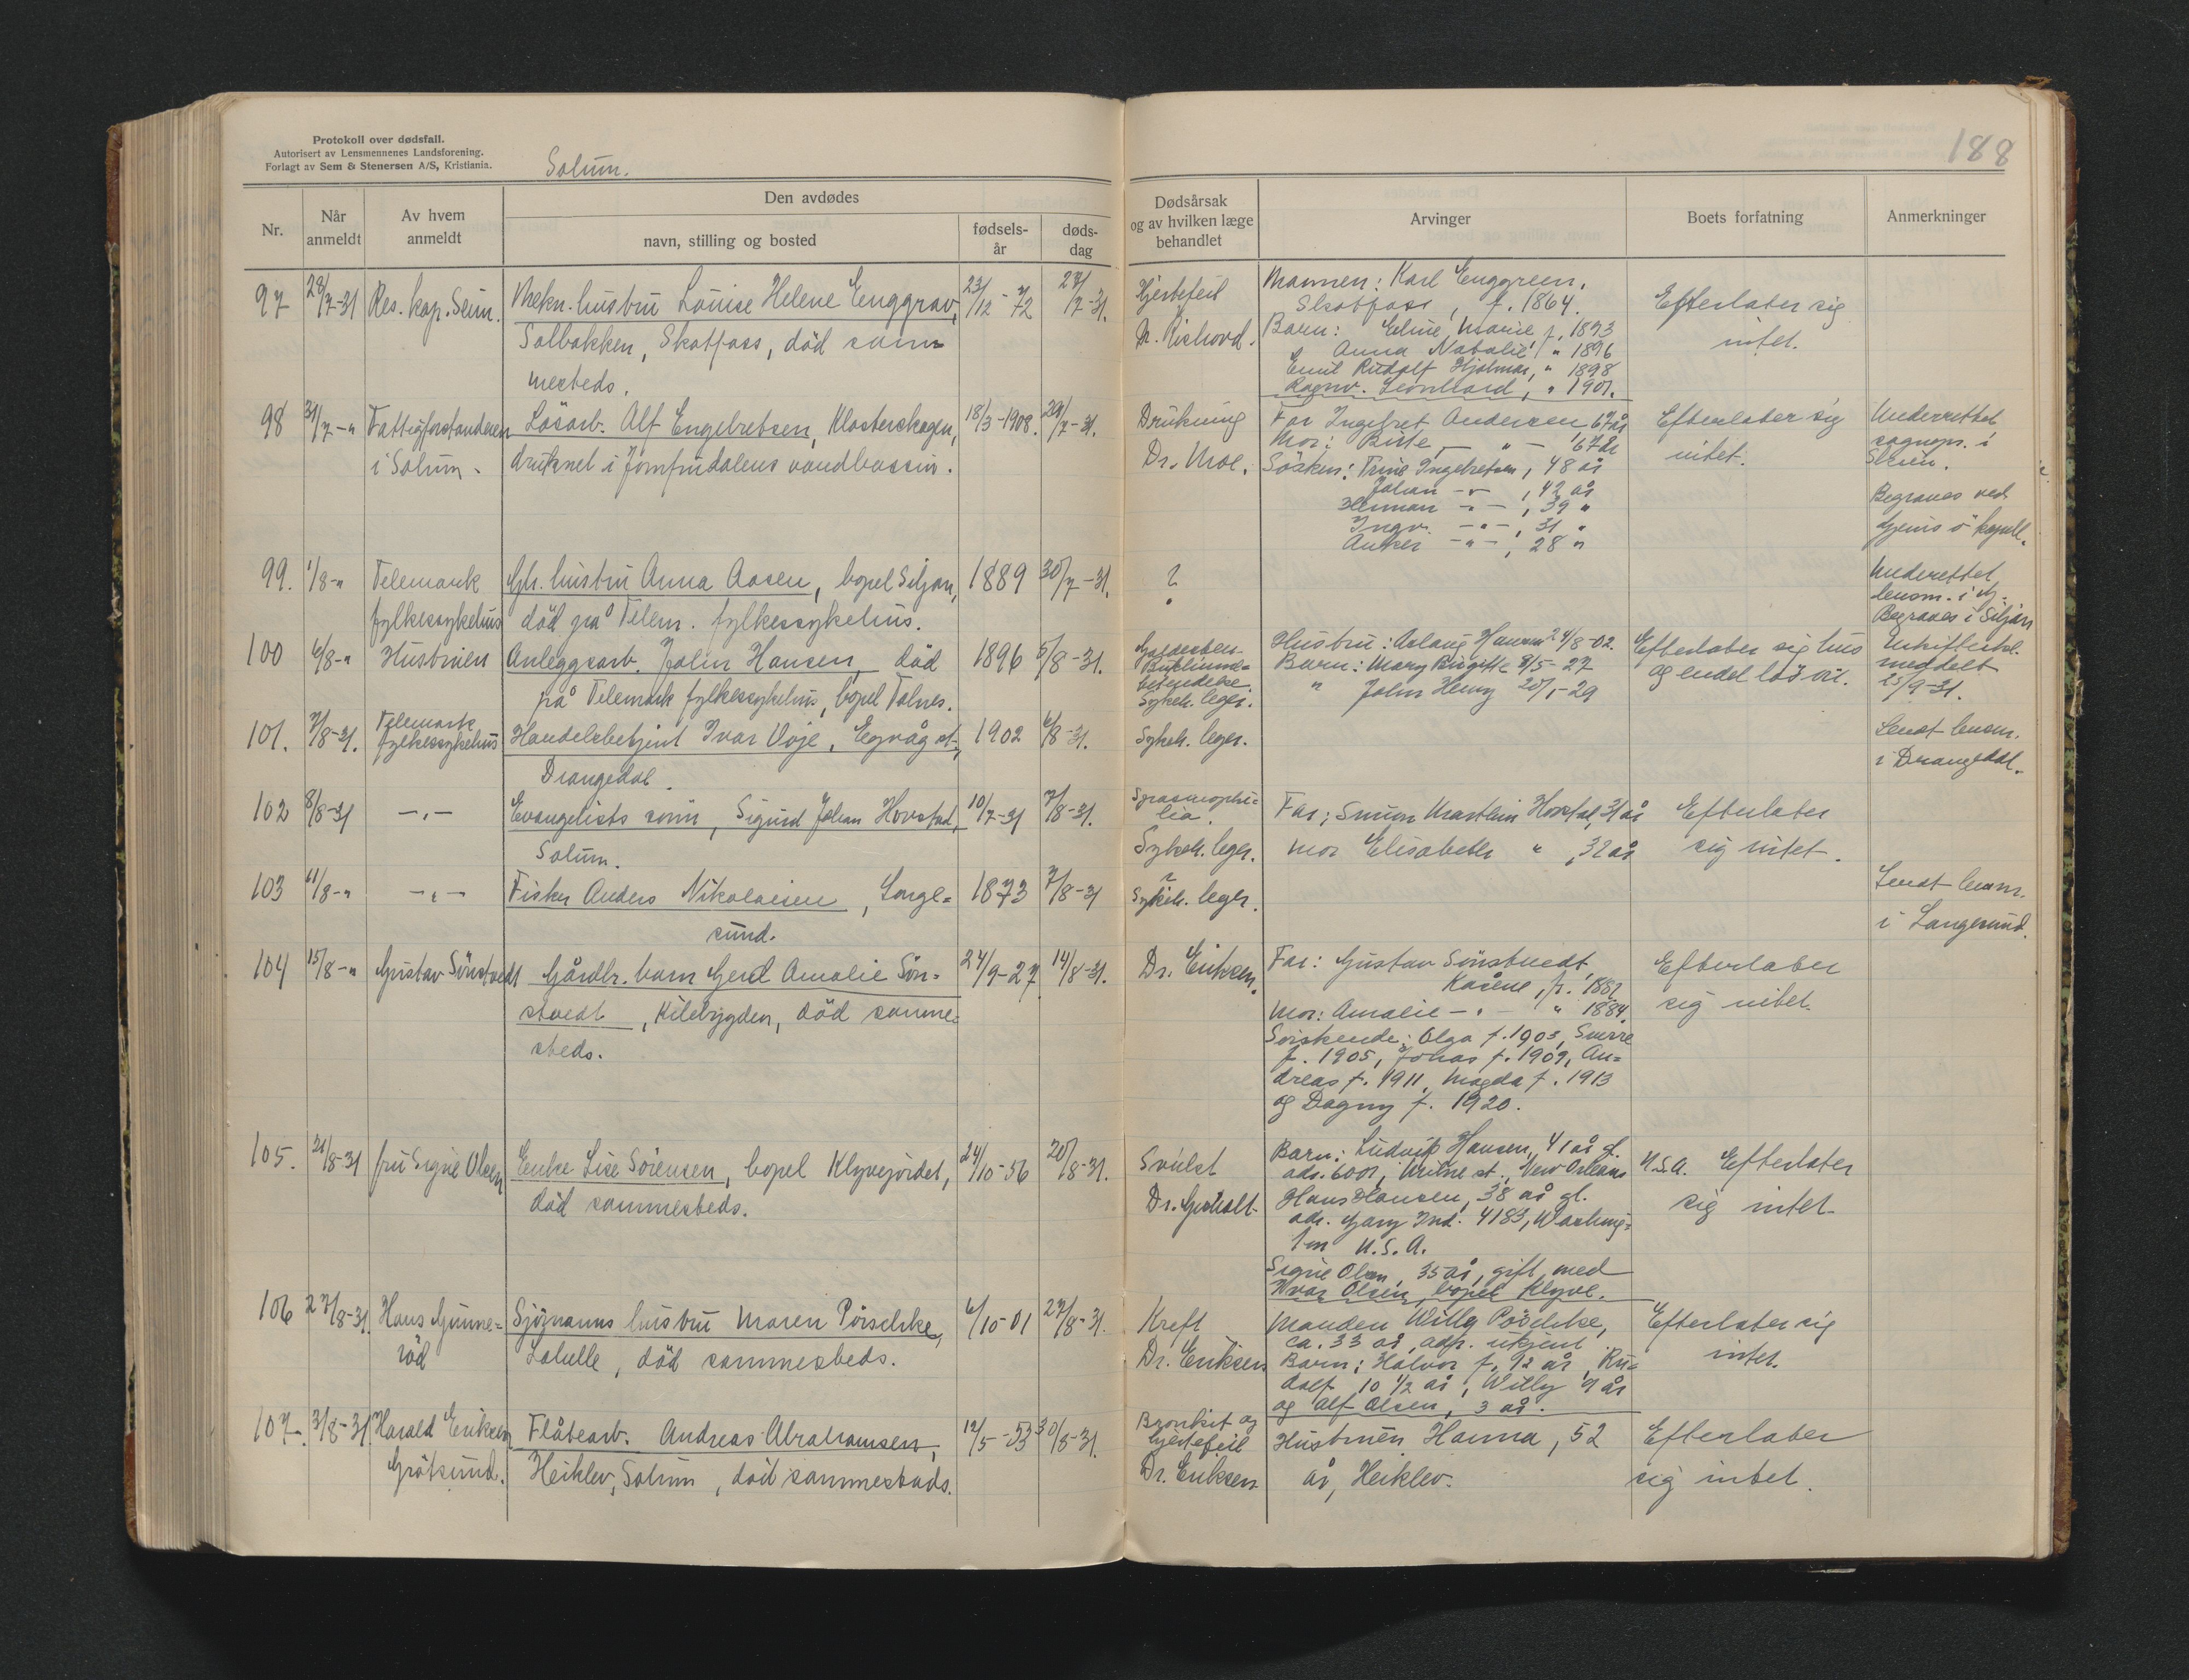 Protokoll over dødsfall.
Autorisert av Lensmennenes Landsforening.
Forlagt av Sem & Stenersen A/S, Kristiania.
Solum.
188
Nr.
Når anmeldt
Av hvem anmeldt
Den avdødes
navn, stilling og bosted
fødsels- år
døds- dag
Dødsårsak og av hvilken læge behandlet
Arvinger
Boets forfatning
Anmerkninger
97 28/7-31 Res. kap. Seim. Mekn. hustru Louise Helene Enggrav, 23/12-72 27/7-31. Hjertefeil Mannen: Karl Enggreen,
Skotfoss, f. 1864. Efterlater sig
Solbakken, Skotfoss, död samme Barn: Eline Marie f. 1893
Anna Natalie " 1896 intet.
mesteds. Emil Rudolf Hjalmar, " 1898
Ragnv. Leonhard, " 1901.
98 31/7-" Fattigforstanderen Lösarb. Alf Engebretsen, Klosterskogen, 18/3-1908. 29/7-31. Drukning Far Ingebret Andersen 67 år Efterlater sig Underrettet
i Solum. druknet i Jomfrudalens vandbassin. Dr. Moe. Mor: Birte - " - 67 år intet. sognepr. i
Sösken: Trine Ingebretsen, 48 år Skien.
Johan - " - , 42 år Begraves ved
Herman - " - , 39 "
Ingv. - " - , 31 " kapell.
- " - , 28 "
99. 1/8-" Telemark hustru Anna Aasen, bopel Siljan, 1889 30/7-31. ? Underettet
fylkessykehus död på Telem. fylkessykehus. lensm. i
Begraves i Siljan
100 6/8-" Hustruen Anleggsarb. John Hansen, död 1896 5/8-31. Hustru: Aslaug Hansen 24/8-02. Efterlater sig hus
på Telemark fylkessykehus, bopel Barn: Mary Birgitte 8/5-27 og endel lösöre. meddelt
Sykeh. leger. " John Henry 20/1-29 25/9-31.
101. 7/8-31. Telemark fylkessykehus Handelsbetjent Ivar Voje, 1902 6/8-31. Sykeh. leger. Sendt lensm.
Drangedal. i Drangedal.
102 8/8-31 - " - Evangelists sönn, Sigurd Johan Hovstad, 10/7-31 7/8-31. Spasmophi=
lia. Far: 31 år Efterlater
Solum. Sykeh. leger. Mor Elisabeth " , 32 år sig intet.
103 11/8-" - " - Fisker Anders Nikolaisen, Lange= 1873 7/8-31 ? Sykeh. leger. Sendt lensm.
sund. i Langesund.
104 15/8-" Gustav Sönstvedt Gårdbr. barn Gerd Amalie Sön= 24/9-27 14/8-31. Dr. Eriksen. Far: Gustav Sönstvedt Efterlater
stvedt, Kilebygden, död samme= f. 1882 sig intet.
steds. Mor: Amalie - " - " 1884.
Söiskende: Olga f. 1903, Sverre
f. 1905, Johas f. 1909, An=
dreas f. 1911, Magda f. 1913
og Dagny f. 1920.
105. 21/8-31 fru Signe Olsen Enke Lise Sörensen, bopel Klyvejordet, 24/10-56 20/8-31. Svulst Barn: Ludvik Hansen, 41 år gl.
död sammesteds. adr. 6001, st., New Orleans U.S.A. Efterlater
Hans Hansen, 38 år gl. sig intet
adr. Gary Ind. 4183, Washing=
ton U.S.A.
Signe Olsen, 35 år, gift med
Olsen, bopel Klyve.
106 27/8-31. Hans Gunne=
röd Sjömanns hustru Maren Pörschke, 6/10-01 27/8-31. Kreft Manden Willy Pörschke, Efterlater sig
död sammesteds. Dr. Eriksen ca. 33 år, adr. ukjent intet.
Barn: Halvor f. 12 år, Ru=
dolf 10 1/2 år, Willy 9 år
og Alf Olsen, 3 år.
107. 31/8-31. Harald Eriksen Flåtearb. Andreas Abrahamsen, 12/5-53 30/8-31. Bronkit og
hjertefeil Hustruen Hanna, 52 Efterlater
Grötsund. Heiklev, Solum, död sammesteds. Dr. Eriksen år, Heiklev. sig intet.